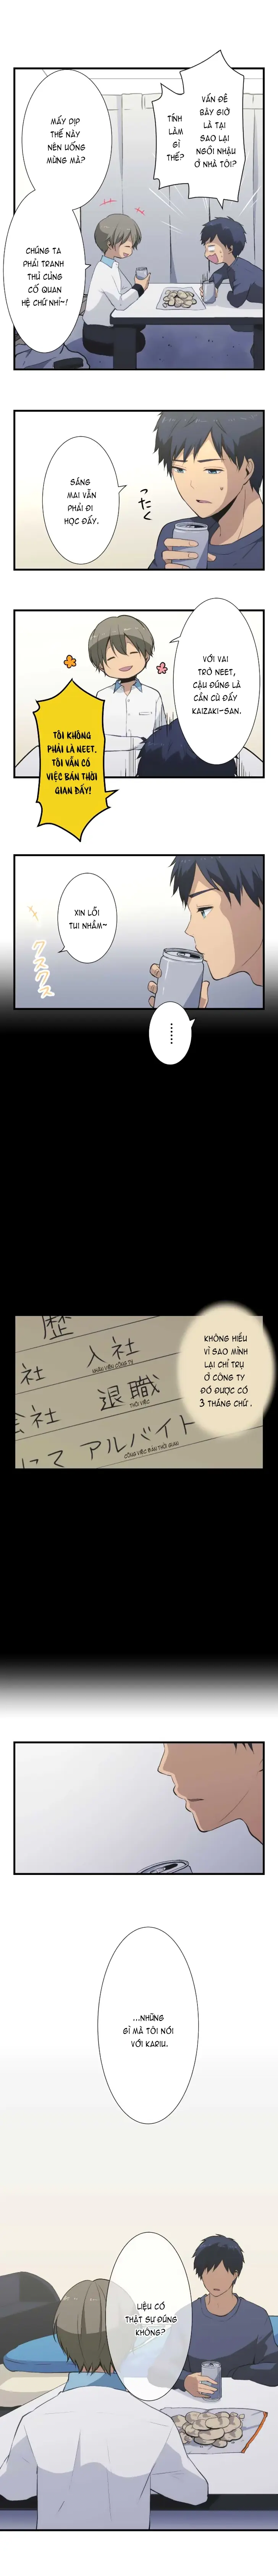 VẤN ĐỀ
BÂY GIỜ
LÀ TẠI
SAO LẠI
NGỒI NHẬU
Ở NHÀ TÔI?
TÍNH
LÀM
GÌ
THẾ?
MẤY DỊP
THẾ NÀY
NÊN UỐNG
MỪNG MÀ?
CHÚNG TA
PHẢI TRANH
THỦ CỦNG
CỐ QUAN
HỆ CHỨ NHỈ~!
ったく
SÁNG
MAI VẪN
PHẢI ĐI
HỌC ĐẤY.
VỚI VAI
TRÒ NEET,
CẬU ĐÚNG LÀ
CẦN CÙ ĐẤY
KAIZAKI-SAN.
TÔI KHÔNG
PHẢI LÀ NEET.
TÔI VẪN CÓ
VIỆC BÁN THỜI
GIAN ĐẤY!
XIN LỖI
TUI NHẦM~
クスクス
......
KHÔNG HIỂU
VÌ SAO MÌNH
LẠI CHỈ TRỤ
Ở CÔNG TY
ĐÓ ĐƯỢC CÓ
3 THÁNG CHỨ.
歴
社 入社
NHÂN VIÊN CÔNG TY
会社 退職
THÔI VIỆC
にて アルバイト
CÔNG VIỆC BÁN THỜI GIAN
...NHỮNG
GÌ MÀ TÔI NÓI
VỚI KARIU.
LIỆU CÓ
THẬT SỰ ĐÚNG
KHÔNG?